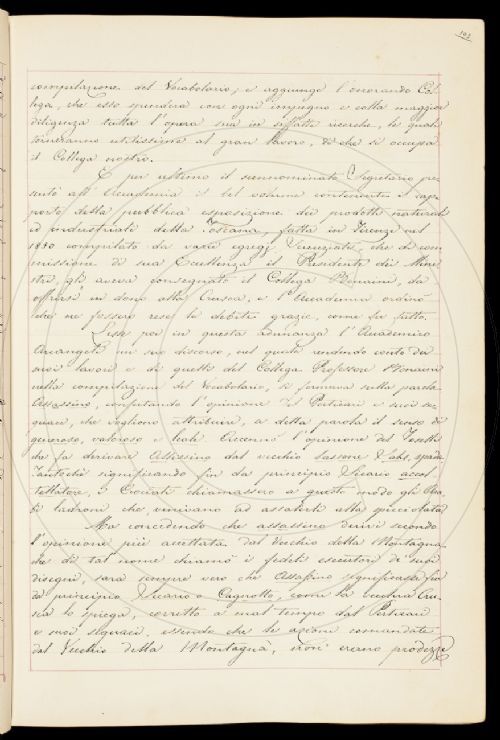 103
compilazione del Vocabolario; e aggiunge l'onorando Col-
lega, che esso spenderà con ogni impegno e colla maggior
diligenza tutta l'opera sua in siffatte ricerche, le quali
torneranno utilissime al gran lavoro, di che si occupa
il Collegio nostro.
E per ultimo il summominato Segretario pre-
sentò all'Accademia il bel volume contenente il rap-
porto della pubblica esposizione dei prodotti naturali
ed industriali della Toscana, fatta in Firenze nel
1850 compilato da varii egregj Scienziati, che di com-
missione di sua Eccellenza il Presidente dei Mini-
stri gli aveva consegnato il Collega Bonaini, da
offrirsi in dono alla Crusca, e l'Accademia ordinò
che ne fossero rese le debite grazie, come fu fatto.
Lesse poi in questa adunanza l'Accademico
Arcangeli un suo discorso, nel quale rendendo conto de'
suoi lavori e di quelli del Collega Professore Bonaini
nella compilazione del Vocabolario, si fermava sulla parola
Assassino, confutando l'opinione del Perticari e suoi se-
guaci, che vogliono attribuire, a detta parola il senso di
generoso, valoroso e leale. Accennò l'opinione del
da fa derivare Assassino dal vecchio Sassone spada
Tantochè significando fin da principio Sicario accol-
tellatore, i Crociati chiamassero a questo modo gli
ti ladroni che venivano ad assalirli alla spicciolata
Ma concedendo che assassino derivi secondo
l'opinione più accettata dal Vecchio della Montagna
che di tal nome chiamò i fedeli esecutori di suoi
disegni, sarà sempre vero che Assassino significasse fin
da principio Sicario o Cagnotto, come la vecchia Cru-
sca lo spiega, corretto a mal tempo dal Perticari
e suoi seguaci, essendo che le azioni comandate
dal Vecchio della Montagna, non erano prodezze